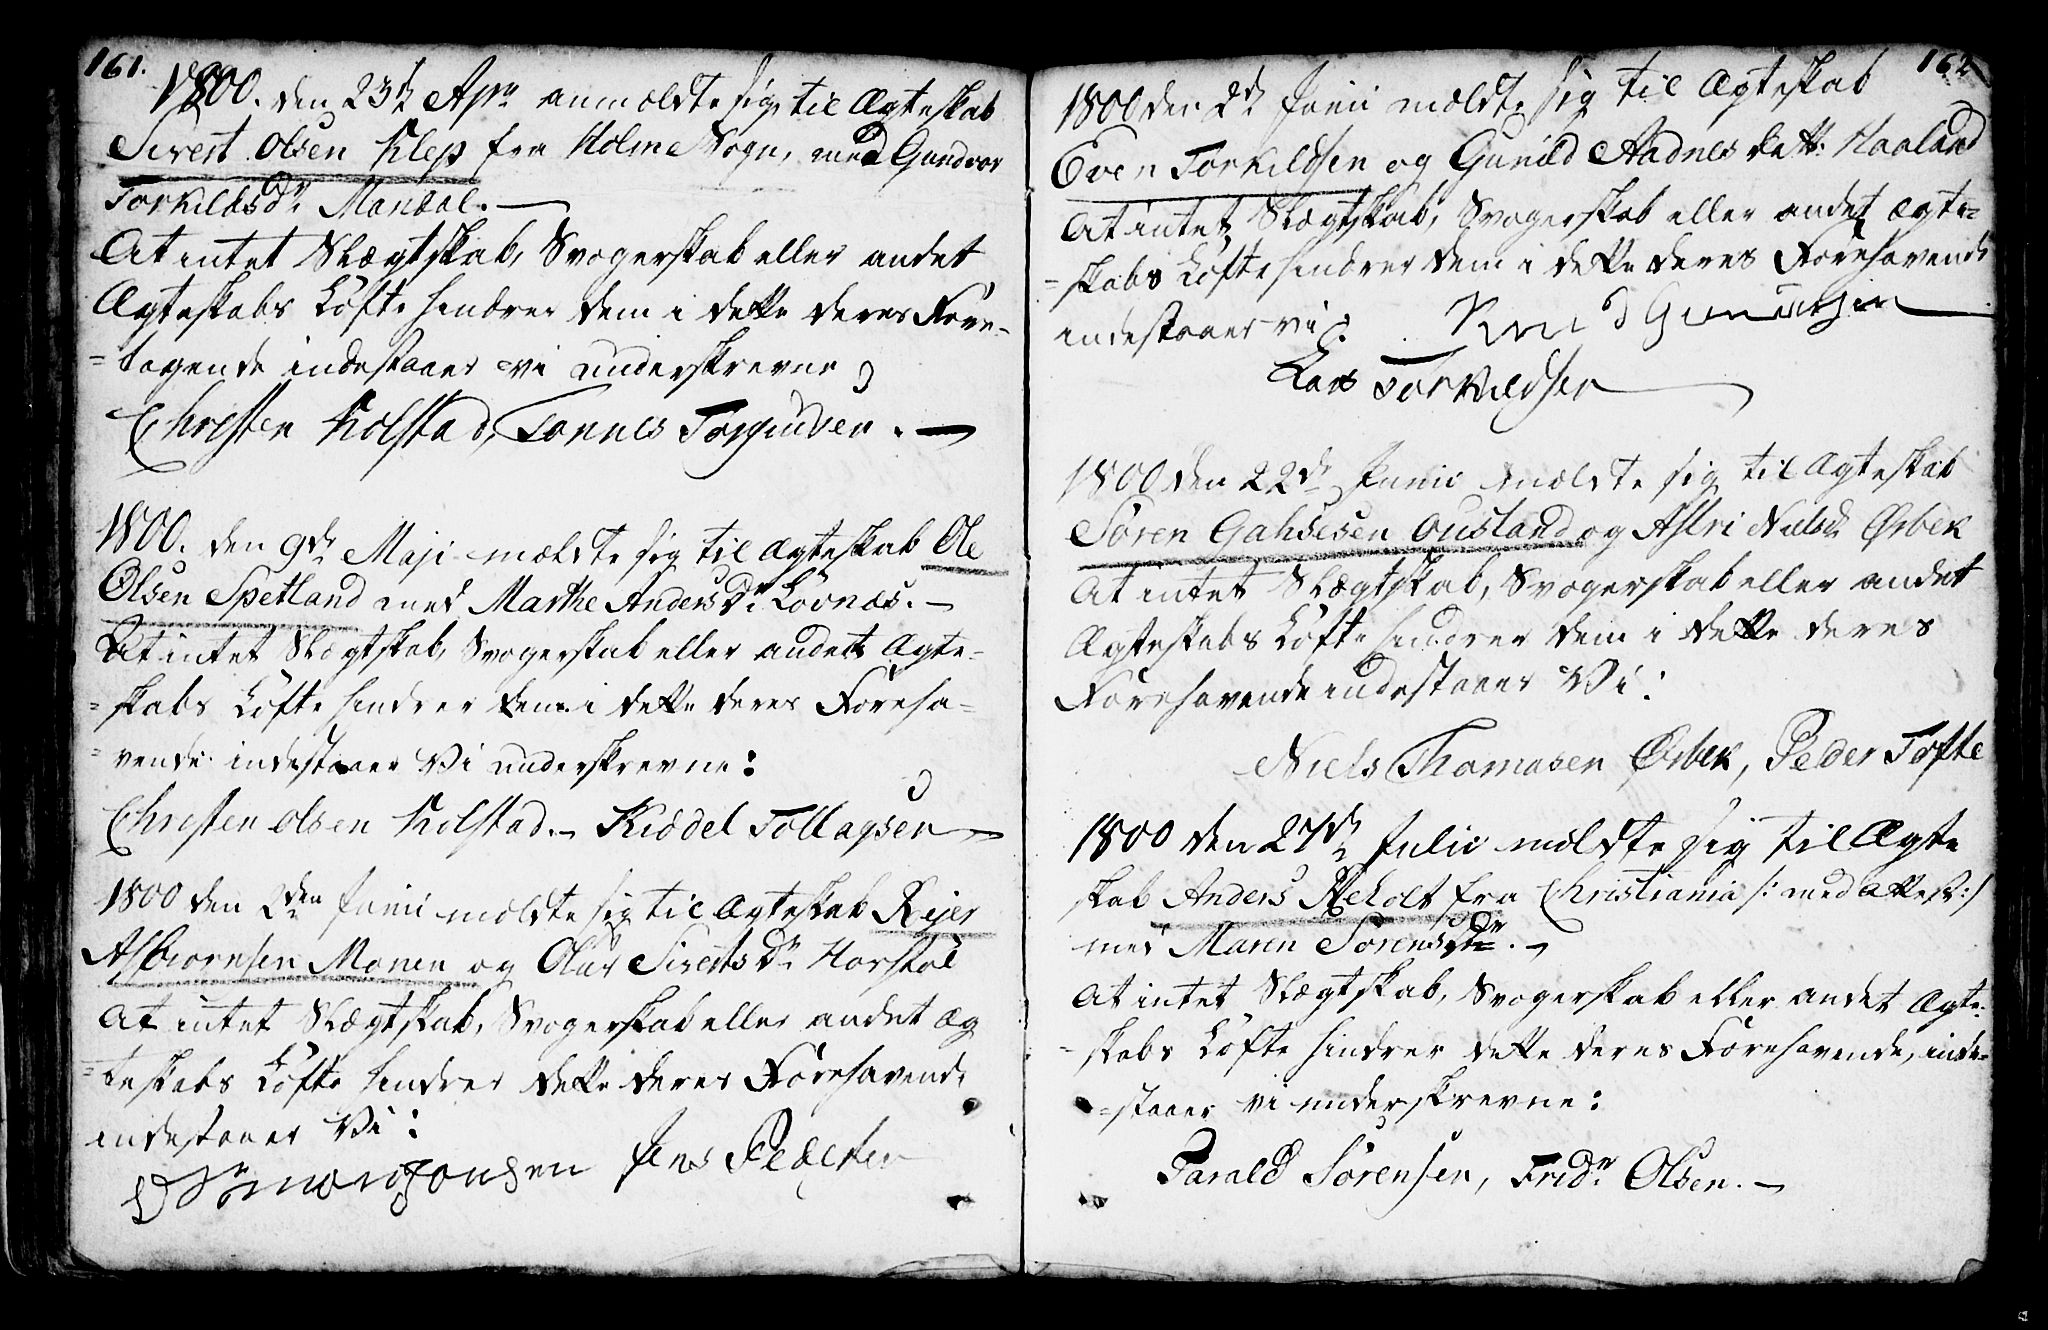 161.
1800. den 23de Apr anmældte sig til Ægteskab
Sivert Olsen Klep fra Holme Sogn, med Gundvor
Torkildsdr Mandal.
At intet Slægtskab, Svogerskab eller andet
Ægteskabs Löfte hindrer dem i dette deres Fore-
=tagende indestaaer vi underskrevne
Christen Kolstad, Tønnes Torgiudsen.
1800. den 9de Maji meldte sig til Ægteskab Ole
Olsen Spetland med Marthe Andersdr Løvnæs.
At intet Slægtskab, Svogerskab eller andet Ægte-
=skabs Löfte hindrer dem i dette deres Foreha-
=vende indestaaer Vi underskrevne:
Christen Olsen Kolstad. Kiøddel Tollagsen
1800 den 2den Junii meldte sig til Ægteskab Rejer
Asbiørnsen Monen og Olur Sivertsdr Harstøl
At intet Slægtskab, Svogerskab eller andet Æg
=teskabs Löfte hindrer dette deres Forehavende
indestaaer Vi:
Simon Jonsen Jens Pedersen
162
1800 den 2de Junii meldte sig til Ægteskab
Even Torkildsen og Gunild Aadnes Datt: Haaland
At intet Slægtskab, Svogerskab eller andet Ægte=
=skabs Löfte hindrer dem i dette deres Forehavende
indestaaer vi: Knud Gunursen
Lars Torkildsen
1800 den 22de Junii meldte sig til Ægteskab
Søren Gahdesen Ousland og Astri Nielsdr Ørbek
At intet Slægtskab, Svogerskab eller andet
Ægteskabs Löfte hindrer dem i dette deres
Forehavende indestaaer Vi:
Niels Thomasen Ørbek, Peder Tofte
1800 den 27de Julii meldte sig til Ægte
skab Anders Reholt fra Christiania /: med Attest:/
med Maren Sørensdr.
At intet Slægtskab, Svogerskab eller andet Ægte-
=skabs Löfte hindrer dette deres Forehavende, inde-
=staaer vi underskrevne:
Tarald Sørensen, Fridr Olsen.